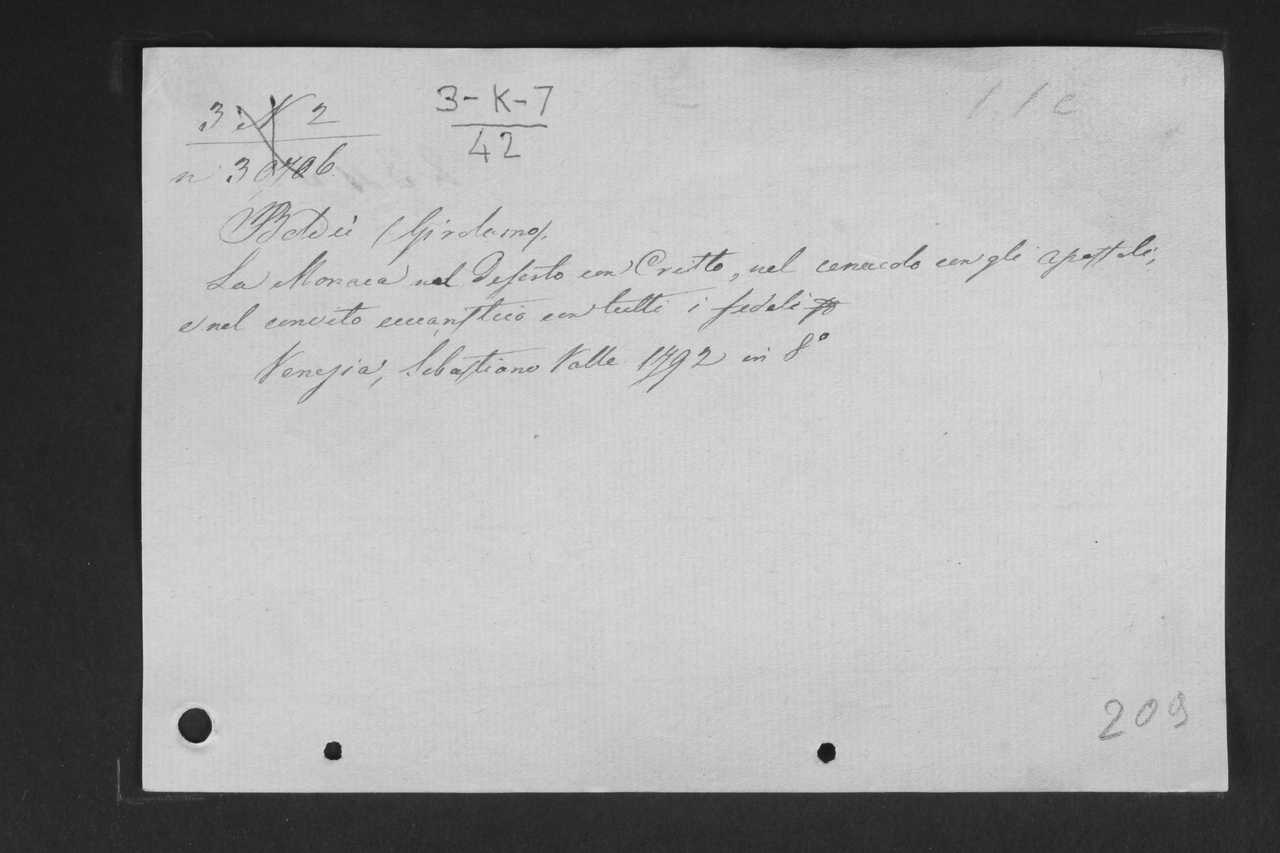 3 N 2
3-K-7
42
n 30706
(Girolamo).
La Monaca nel Deserto con Cristo, nel cenacolo con gli apostoli,
e nel convito eucaristico con tutti i fedeli
Venezia, Sebastiano Valle 1792 in 8°
209